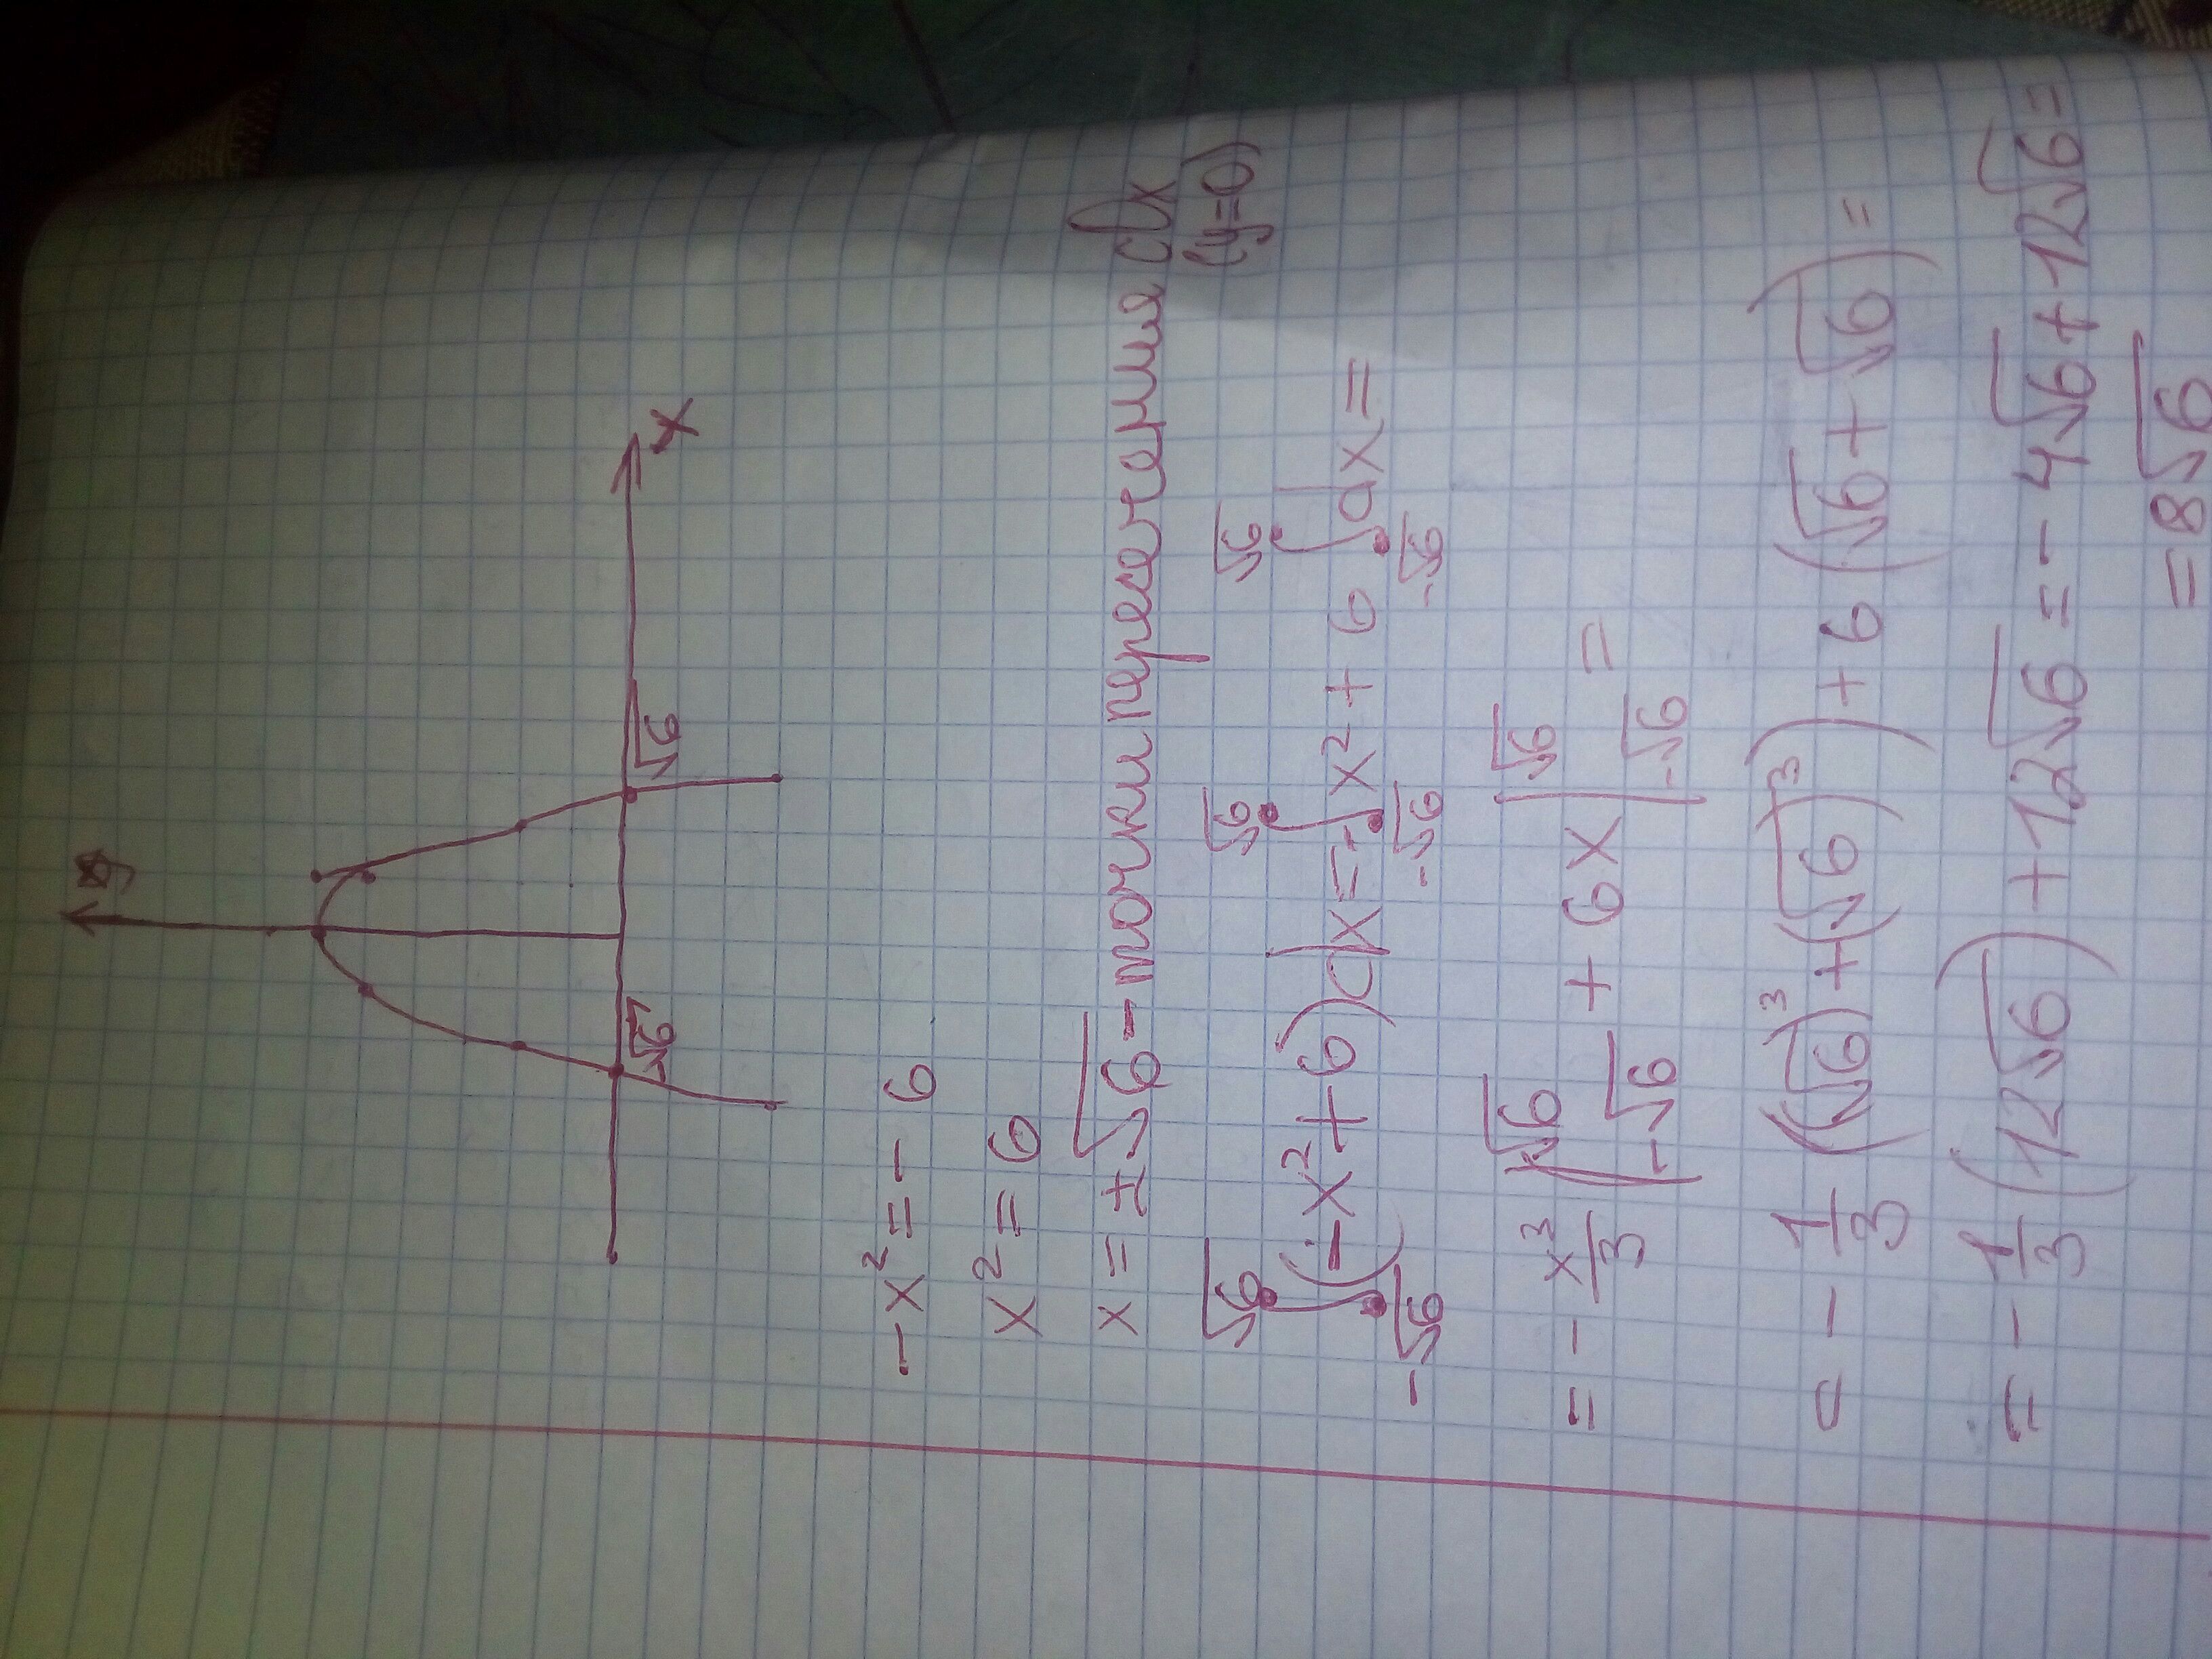 y
x
√6
-x² = -6
x² = 6
x = ±√6 - точки пересечения с Ix
(y=0)
√6 √6 √6
∫(-x²+6)dx = -∫x² + 6∫dx =
-√6 -√6 -√6
= - x³/3 |√6 -√6 + 6x |√6 -√6 =
= - 1/3 ((√6)³ + (√6)³) + 6(√6 + √6) =
= - 1/3 (12√6) + 12√6 = - 4√6 + 12√6 =
= 8√6